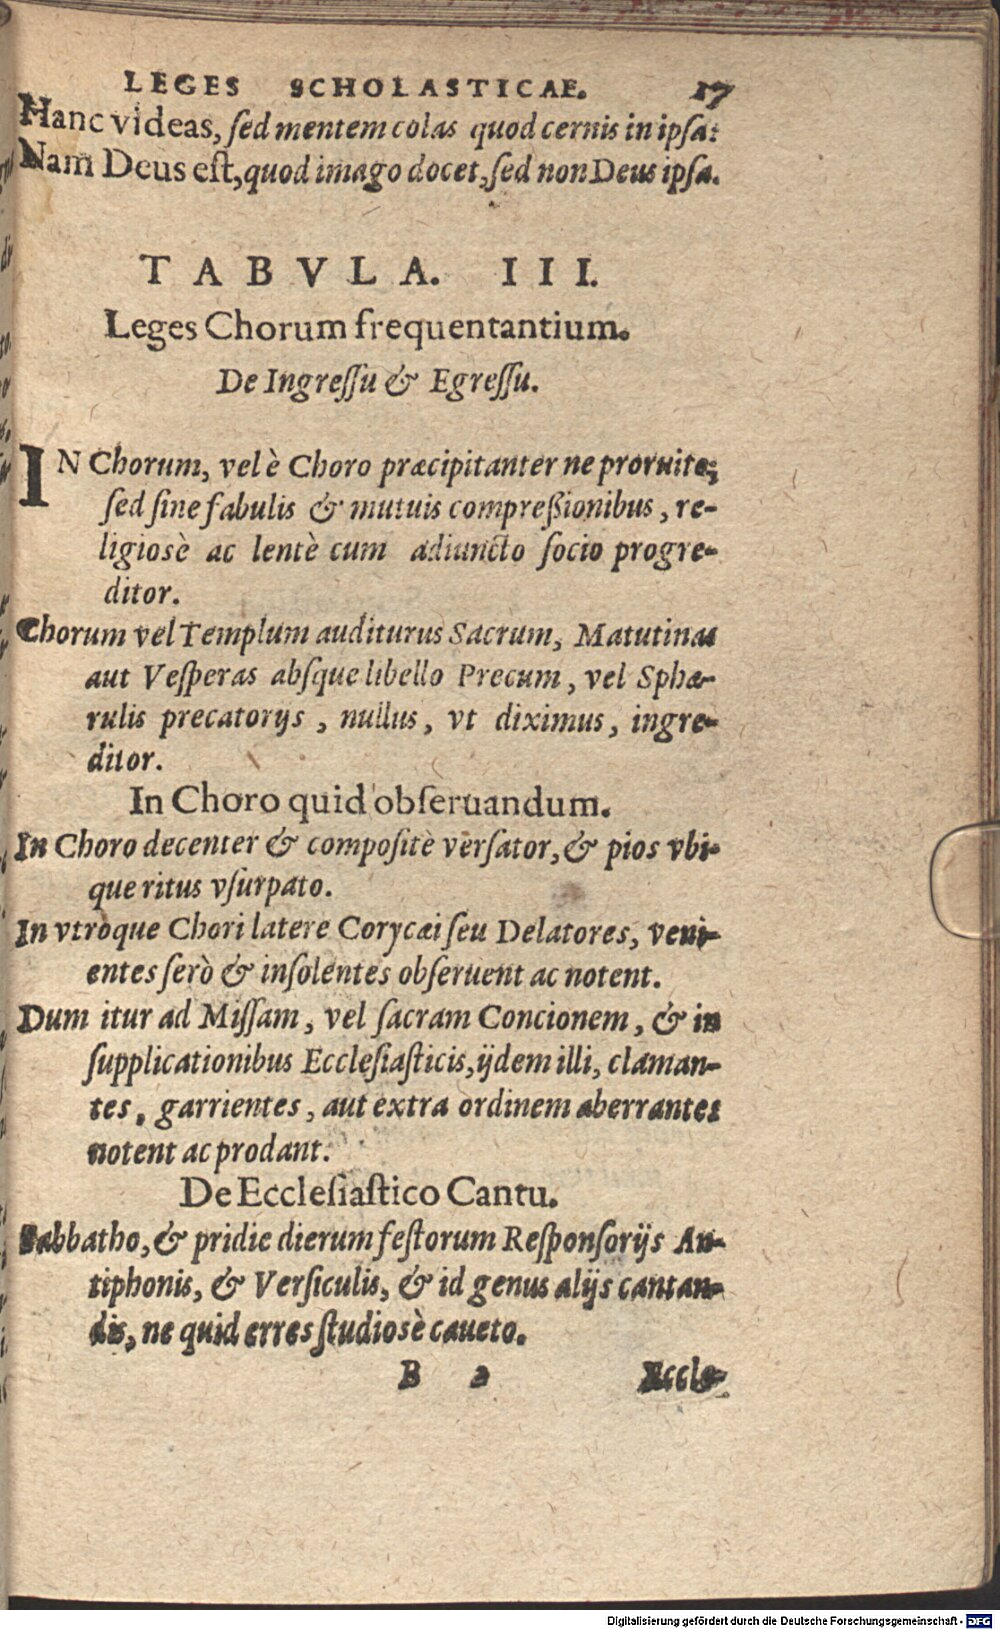 LEGES SCHOLASTICAE. 17
Hanc videas, ſed mentem colas quod cernis in ipſa:
Nam Deus eſt, quod imago docet, ſed non Deus ipſa.
TABVLA. III.
Leges Chorum frequentantium.
De Ingreſſu & Egreſſu.
IN Chorum, vel è Choro præcipitanter ne proruite;
ſed ſine fabulis & mutuis compreßionibus, re-
ligiosè ac lentè cum adiuncto ſocio progre-
ditor.
Chorum vel Templum auditurus Sacrum, Matutinas
aut Veſperas abſque libello Precum, vel Sphæ-
rulis precatorijs, nullus, vt diximus, ingre-
ditor.
In Choro quid obſeruandum.
In Choro decenter & compoſitè verſator, & pios vbi-
que ritus vſurpato.
In vtroque Chori latere Corycæi ſeu Delatores, veni-
entes ſerò & inſolentes obſeruent ac notent.
Dum itur ad Miſſam, vel ſacram Concionem, & in
ſupplicationibus Eccleſiaſticis, ijdem illi, claman-
tes, garrientes, aut extra ordinem aberrantes
notent ac prodant.
De Eccleſiaſtico Cantu.
Sabbatho, & pridie dierum feſtorum Reſponſorijs An-
tiphonis, & Verſiculis, & id genus alijs cantan-
dis, ne quid erres ſtudiosè caueto.
B 2 Eccle-
Digitalisierung gefördert durch die Deutsche Forschungsgemeinschaft - DFG